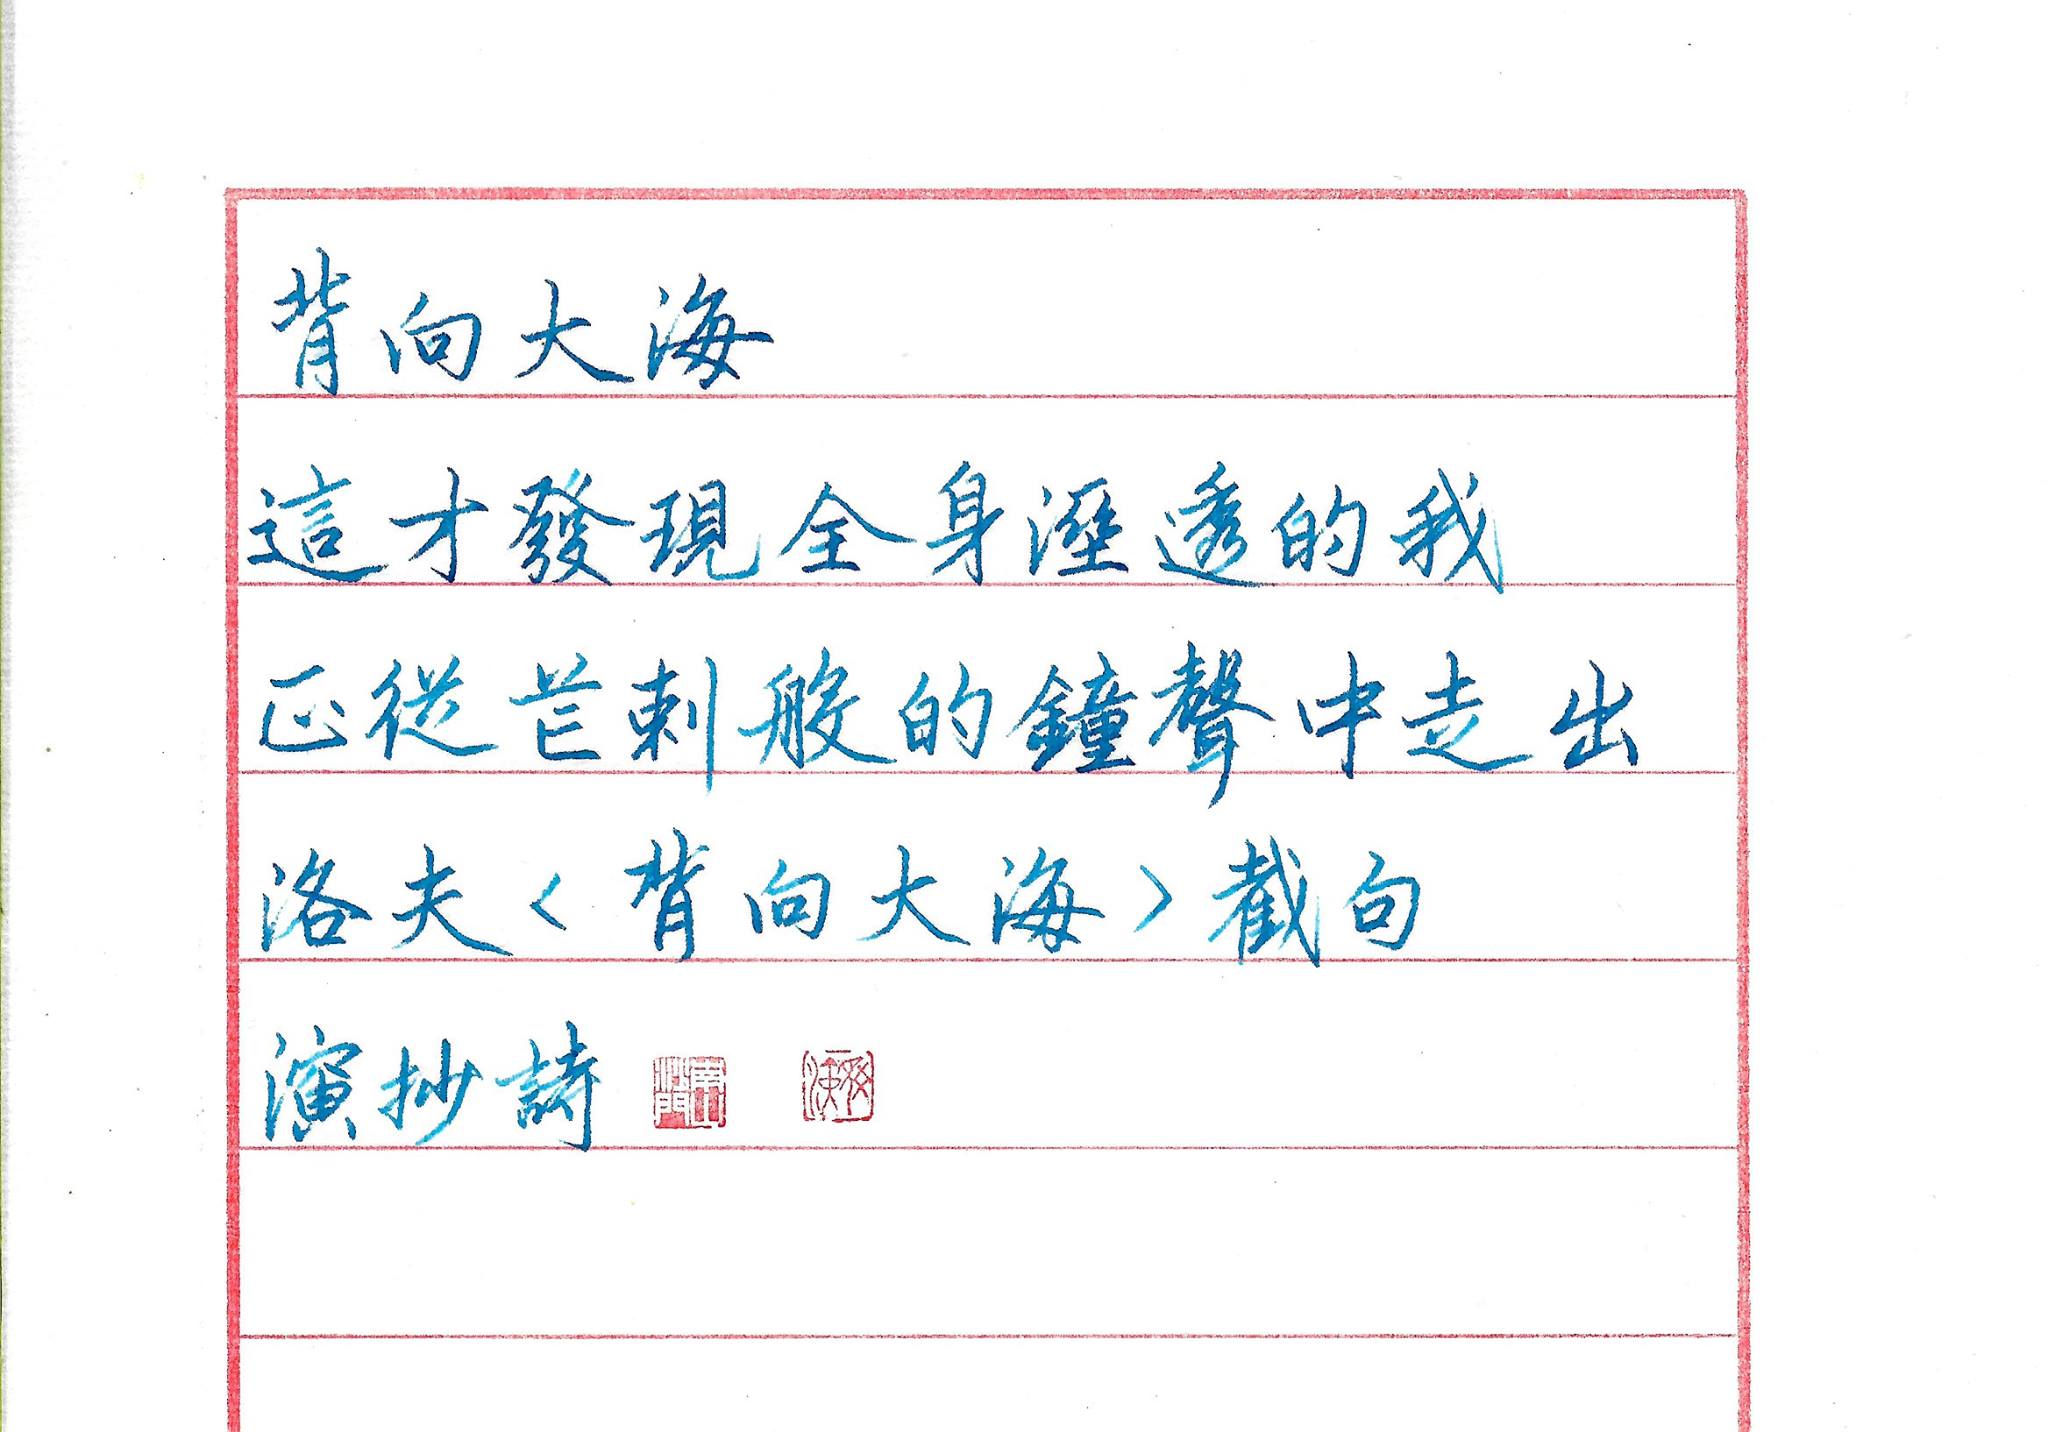 背向大海
這才發現全身溼透的我
正從芒刺般的鐘聲中走出
洛夫〈背向大海〉截句
演抄詩